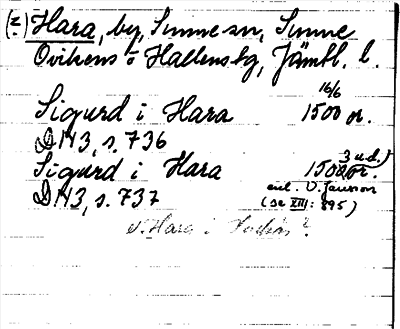 (2) Hara, by, Sunne sn, Sunne
Ovikens o Hallens tg, Jämtl. l.
Sigurd i Hara 16/6 1500 or.
DN3, s. 736
Sigurd i Hara 1500 or. 3 ud.)
DN3, s. 737 enl. O. Jansson
(se XIII: 895)
Hara i